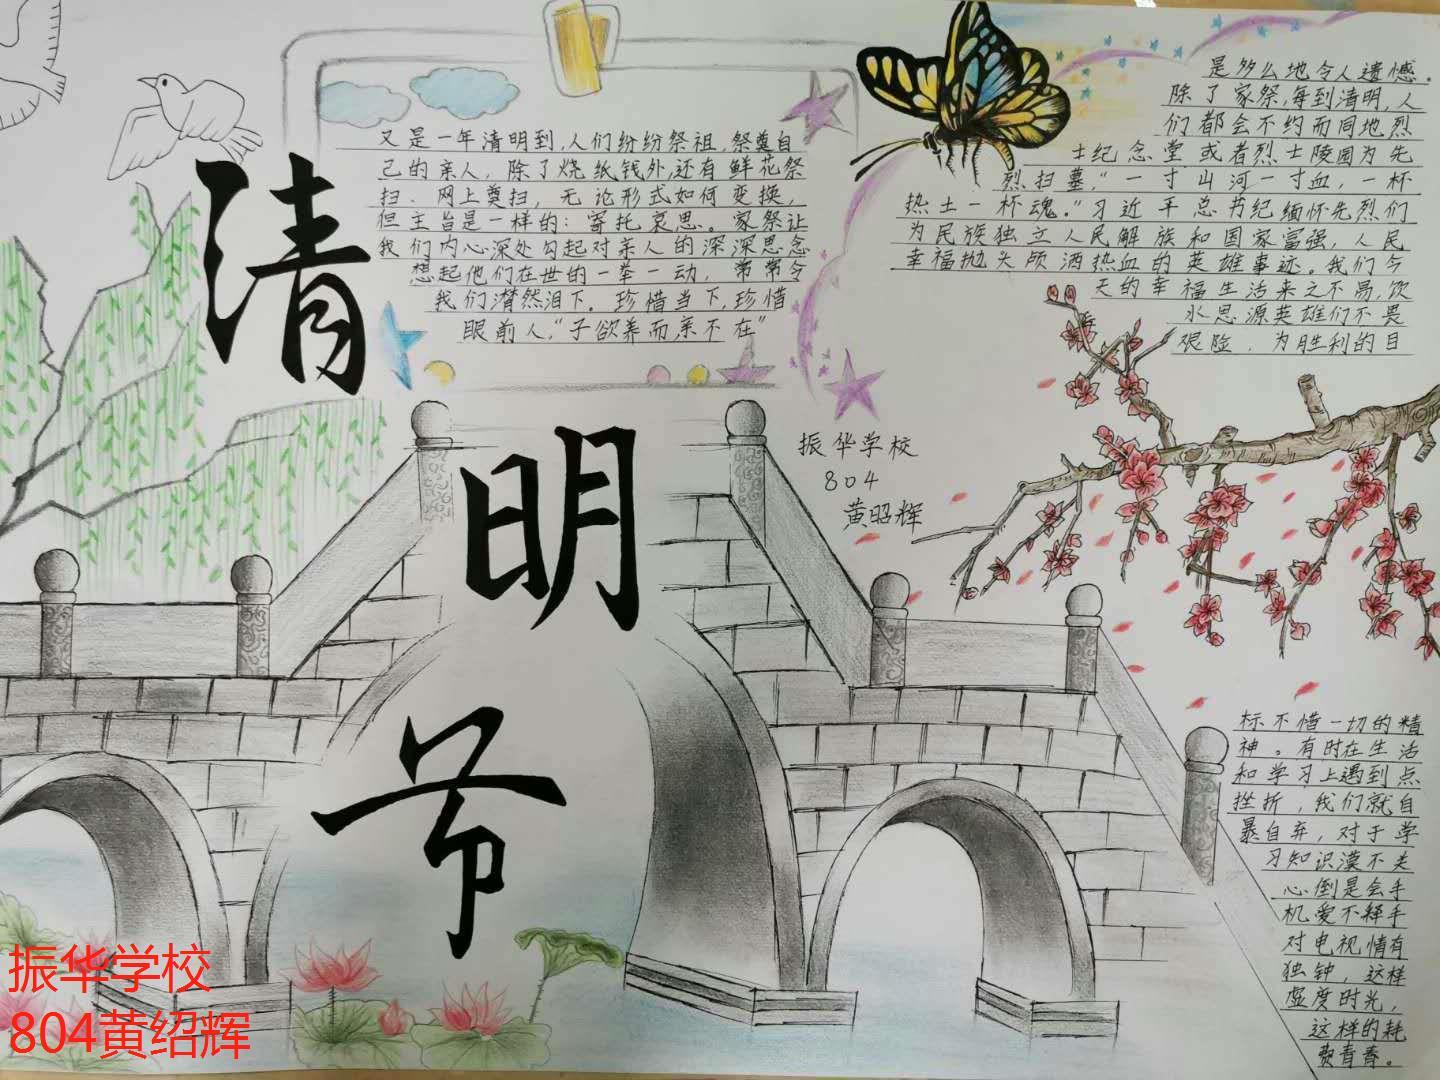 清
明
节
又是一年清明到,人们纷纷祭祖,祭奠自
己的亲人,除了烧纸钱外,还有鲜花祭
扫、网上奠扫,无论形式如何变换,
但主旨是一样的:寄托哀思。家祭让
我们内心深处勾起对亲人的深深思念
想起他们在世的一举一动,常常令
我们潸然泪下。珍惜当下,珍惜
眼前人,“子欲养而亲不在”
是多么地令人遗憾。
除了家祭,每到清明,人
们都会不约而同地烈
士纪念堂或者烈士陵园为先
烈扫墓,“一寸山河一寸血,一杯
热土一杯魂。”习近平总书纪缅怀先烈们
为民族独立人民解放和国家富强,人民
幸福抛头颅洒热血的英雄事迹。我们今
天的幸福生活来之不易,饮
水思源英雄们不畏
艰险,为胜利的目
标不惜一切的精
神。有时在生活
和学习上遇到点
挫折,我们就自
暴自弃,对于学
习知识漠不关
心倒是会手
机爱不释手
对电视情有
独钟,这样
虚度时光,
这样的耗
费青春。
振华学校
804
黄昭辉
振华学校
804黄绍辉